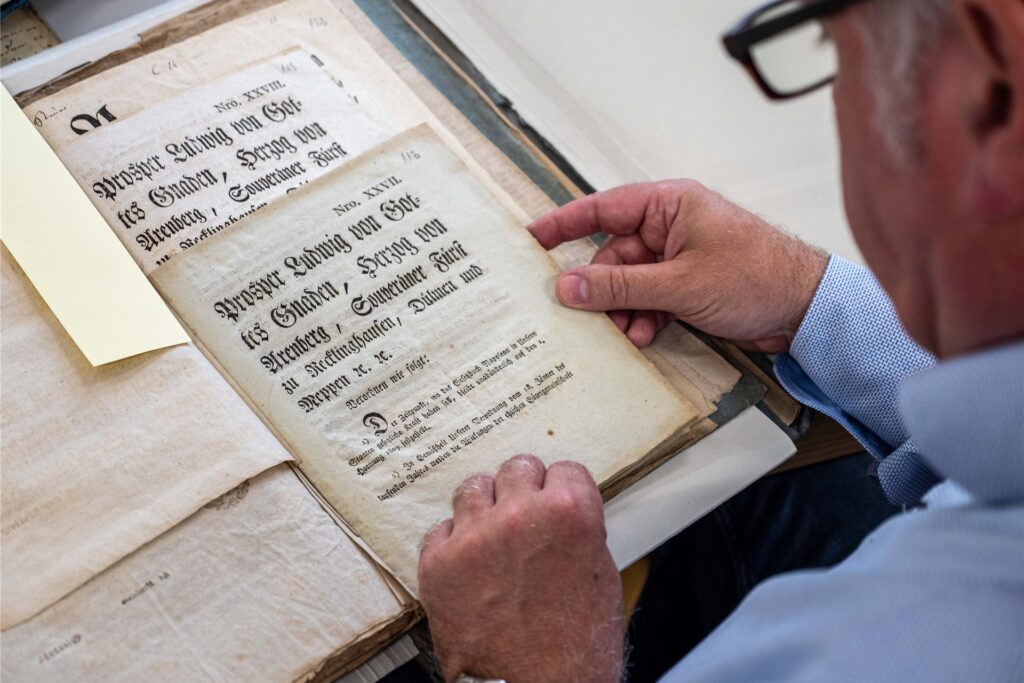 Nro. XXVIII.
Prosper Ludwig von Got-
tes Gnaden, Herzog von
Arenberg, Souveräner Fürst
zu Recklinghausen,
113
Nro. XXVII.
Prosper Ludwig von Got-
tes Gnaden, Herzog von
Arenberg, Souveräner Fürst
zu Recklinghausen, Dülmen und
Meppen ꝛc. ꝛc.
Verordnen wie folgt:
Der Zeitpunkt, wo das Gesetzbuch Napoleons in Unsern
Staaten gesetzliche Kraft haben soll, bleibt unabänderlich auf den 1.
Hornung festgesetzt.
2) In Gemäsheit Unserer Verordnung vom 28. Jänner des
laufenden Jahres werden die Wirkungen der ehlichen Gütergemeinschaft